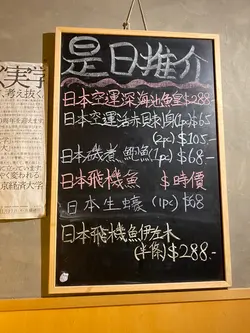 是日推介
日本空運深海池魚皇$288.-
日本空運活赤貝刺身(1pc)$65
(2pc)$105.-
日本磯煮鮑魚(1pc)$68.-
日本飛機魚 $時價
日本生蠔 (1pc)$68
日本飛機魚伊左木
(半條)$288.-
実学
考え抜く
京経済大学